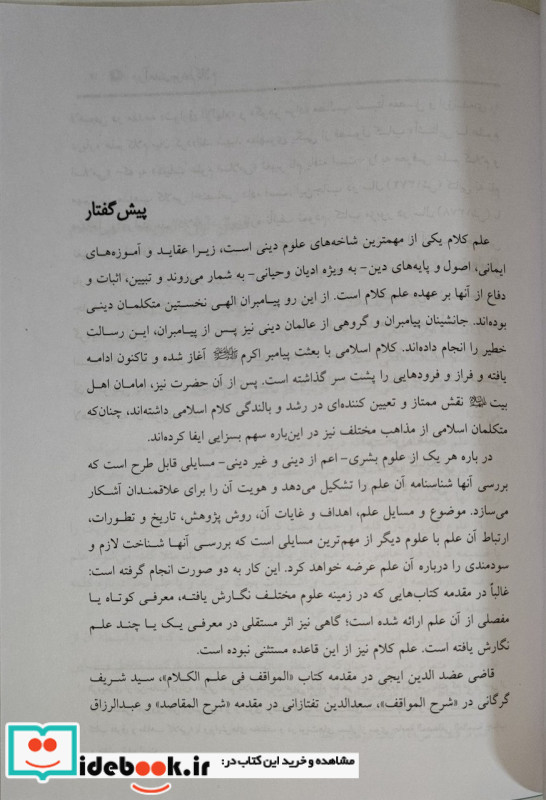 پیش گفتار
علم کلام یکی از مهمترین شاخه‌های علوم دینی است، زیرا عقاید و آموزه‌های
ایمانی، اصول و پایه‌های دین- به ویژه ادیان وحیانی- به شمار می‌روند و تبیین، اثبات و
دفاع از آنها بر عهده علم کلام است. از این رو پیامبران الهی نخستین متکلمان دینی
بوده‌اند. جانشینان پیامبران و گروهی از عالمان دینی نیز پس از پیامبران، این رسالت
خطیر را انجام داده‌اند. کلام اسلامی با بعثت پیامبر اکرم ﷺ آغاز شده و تاکنون ادامه
یافته و فراز و فرودهایی را پشت سر گذاشته است. پس از آن حضرت نیز، امامان اهل
بیت نقش ممتاز و تعیین کننده‌ای در رشد و بالندگی کلام اسلامی داشته‌اند، چنان‌که
متکلمان اسلامی از مذاهب مختلف نیز در این‌باره سهم بسزایی ایفا کرده‌اند.
در باره هر یک از علوم بشری- اعم از دینی و غیر دینی- مسایلی قابل طرح است که
بررسی آنها شناسنامه آن علم را تشکیل می‌دهد و هویت آن را برای علاقمندان آشکار
می‌سازد. موضوع و مسایل علم، اهداف و غایات آن، روش پژوهش، تاریخ و تطورات،
ارتباط آن علم با علوم دیگر از مهم‌ترین مسایلی است که بررسی آنها شناخت لازم و
سودمندی را درباره آن علم عرضه خواهد کرد. این کار به دو صورت انجام گرفته است:
غالباً در مقدمه کتاب‌هایی که در زمینه علوم مختلف نگارش یافته، معرفی کوتاه یا
مفصلی از آن علم ارائه شده است؛ گاهی نیز اثر مستقلی در معرفی یک یا چند علم
نگارش یافته است. علم کلام نیز از این قاعده مستثنی نبوده است.
قاضی عضد الدین ایجی در مقدمه کتاب «المواقف فی علم الکلام»، سید شریف
گرگانی در «شرح المواقف»، سعدالدین تفتازانی در مقدمه «شرح المقاصد» و عبدالرزاق
مشاهده و خرید این کتاب در:
idebook.ir